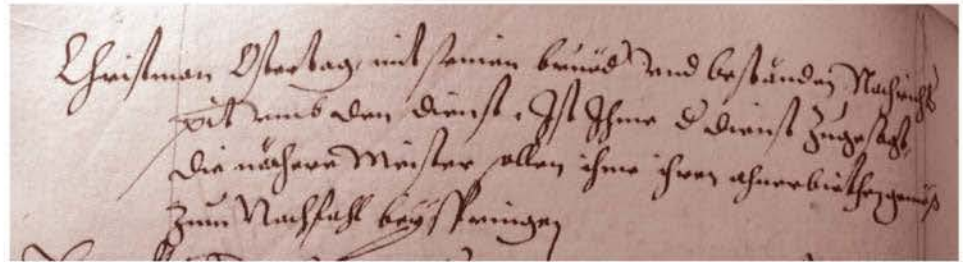 Christman Ostertag, mit seinen brüed und beständen Nachricht
pit umb den dienst, Ist Ihme d dienst Zugesagt,
die nähere Meister sollen ihme ihren ahnerbiethen gemäß
Zum Nachfahl beÿspringen